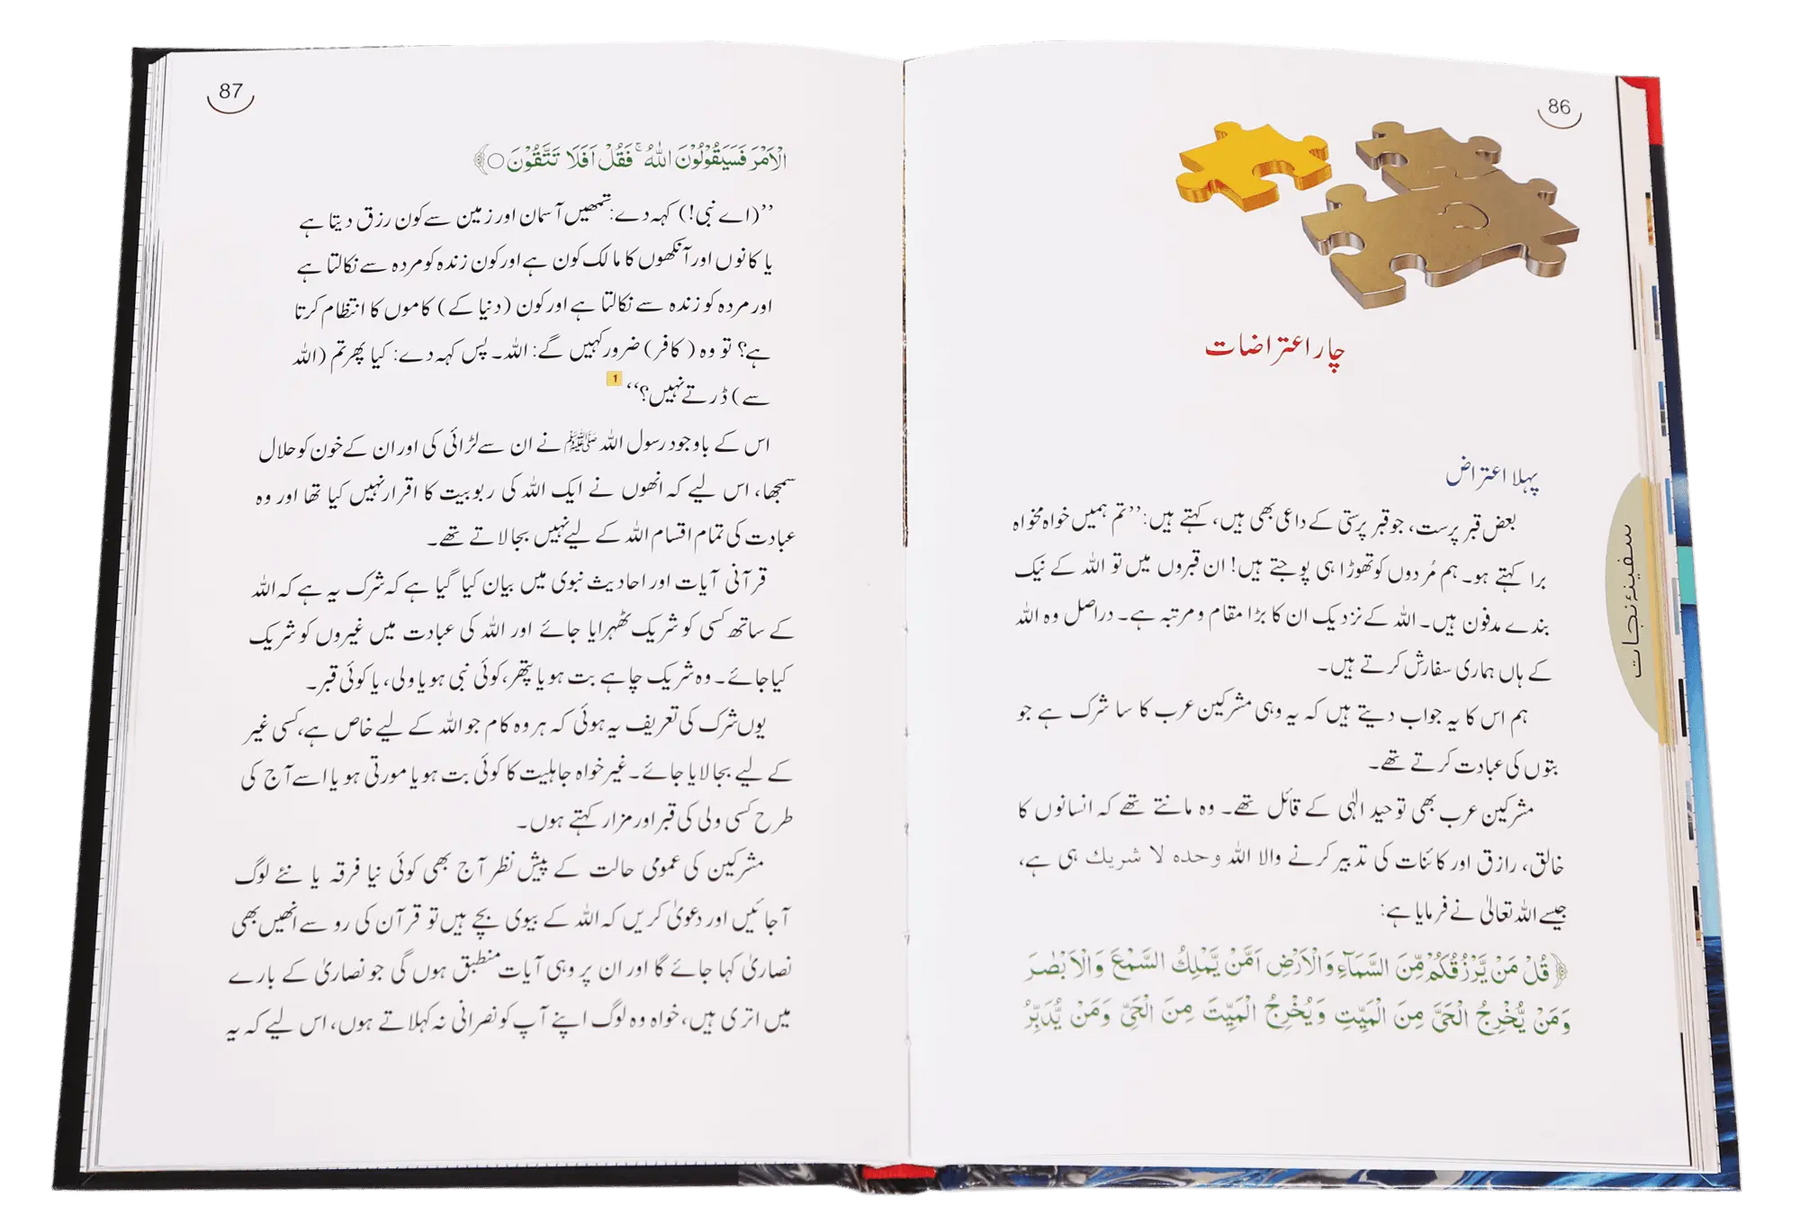 86
چار اعتراضات
پہلا اعتراض
بعض قبر پرست، جو قبر پرستی کے داعی بھی ہیں، کہتے ہیں: ’’تم ہمیں خواہ مخواہ
برا کہتے ہو۔ ہم مُردوں کو تھوڑا ہی پوجتے ہیں! ان قبروں میں تو اللہ کے نیک
بندے مدفون ہیں۔ اللہ کے نزدیک ان کا بڑا مقام و مرتبہ ہے۔ دراصل وہ اللہ
کے ہاں ہماری سفارش کرتے ہیں۔
ہم اس کا یہ جواب دیتے ہیں کہ یہ وہی مشرکین عرب کا سا شرک ہے جو
بتوں کی عبادت کرتے تھے۔
مشرکین عرب بھی توحید الٰہی کے قائل تھے۔ وہ مانتے تھے کہ انسانوں کا
خالق، رازق اور کائنات کی تدبیر کرنے والا اللہ وحدہ لا شریك ہی ہے،
جیسے اللہ تعالیٰ نے فرمایا ہے:
﴿قُلْ مَنْ یَّرْزُقُكُمْ مِّنَ السَّمَآءِ وَالْاَرْضِ اَمَّنْ یَّمْلِكُ السَّمْعَ وَالْاَبْصٰرَ
وَمَنْ یُّخْرِجُ الْحَیَّ مِنَ الْمَیِّتِ وَیُخْرِجُ الْمَیِّتَ مِنَ الْحَیِّ وَمَنْ یُّدَبِّرُ
سفینۂ نجات
87
الْاَمْرَ فَسَیَقُوْلُوْنَ اللّٰهُ ۚ فَقُلْ اَفَلَا تَتَّقُوْنَ ○﴾
’’(اے نبی!) کہہ دے: تمھیں آسمان اور زمین سے کون رزق دیتا ہے
یا کانوں اور آنکھوں کا مالک کون ہے اور کون زندہ کو مردہ سے نکالتا ہے
اور مردہ کو زندہ سے نکالتا ہے اور کون (دنیا کے) کاموں کا انتظام کرتا
ہے؟ تو وہ (کافر) ضرور کہیں گے: اللہ۔ پس کہہ دے: کیا پھر تم (اللہ
سے) ڈرتے نہیں؟‘‘ 1
اس کے باوجود رسول اللہ ﷺ نے ان سے لڑائی کی اور ان کے خون کو حلال
سمجھا، اس لیے کہ انھوں نے ایک اللہ کی ربوبیت کا اقرار نہیں کیا تھا اور وہ
عبادت کی تمام اقسام اللہ کے لیے نہیں بجا لاتے تھے۔
قرآنی آیات اور احادیث نبوی میں بیان کیا گیا ہے کہ شرک یہ ہے کہ اللہ
کے ساتھ کسی کو شریک ٹھہرایا جائے اور اللہ کی عبادت میں غیروں کو شریک
کیا جائے۔ وہ شریک چاہے بت ہو یا پتھر، کوئی نبی ہو یا ولی، یا کوئی قبر۔
یوں شرک کی تعریف یہ ہوئی کہ ہر وہ کام جو اللہ کے لیے خاص ہے، کسی غیر
کے لیے بجا لایا جائے۔ غیر خواہ جاہلیت کا کوئی بت ہو یا مورتی ہو یا اسے آج کی
طرح کسی ولی کی قبر اور مزار کہتے ہوں۔
مشرکین کی عمومی حالت کے پیش نظر آج بھی کوئی نیا فرقہ یا نئے لوگ
آجائیں اور دعویٰ کریں کہ اللہ کے بیوی بچے ہیں تو قرآن کی رو سے انھیں بھی
نصاریٰ کہا جائے گا اور ان پر وہی آیات منطبق ہوں گی جو نصاریٰ کے بارے
میں اتری ہیں، خواہ وہ لوگ اپنے آپ کو نصرانی نہ کہلاتے ہوں، اس لیے کہ یہ